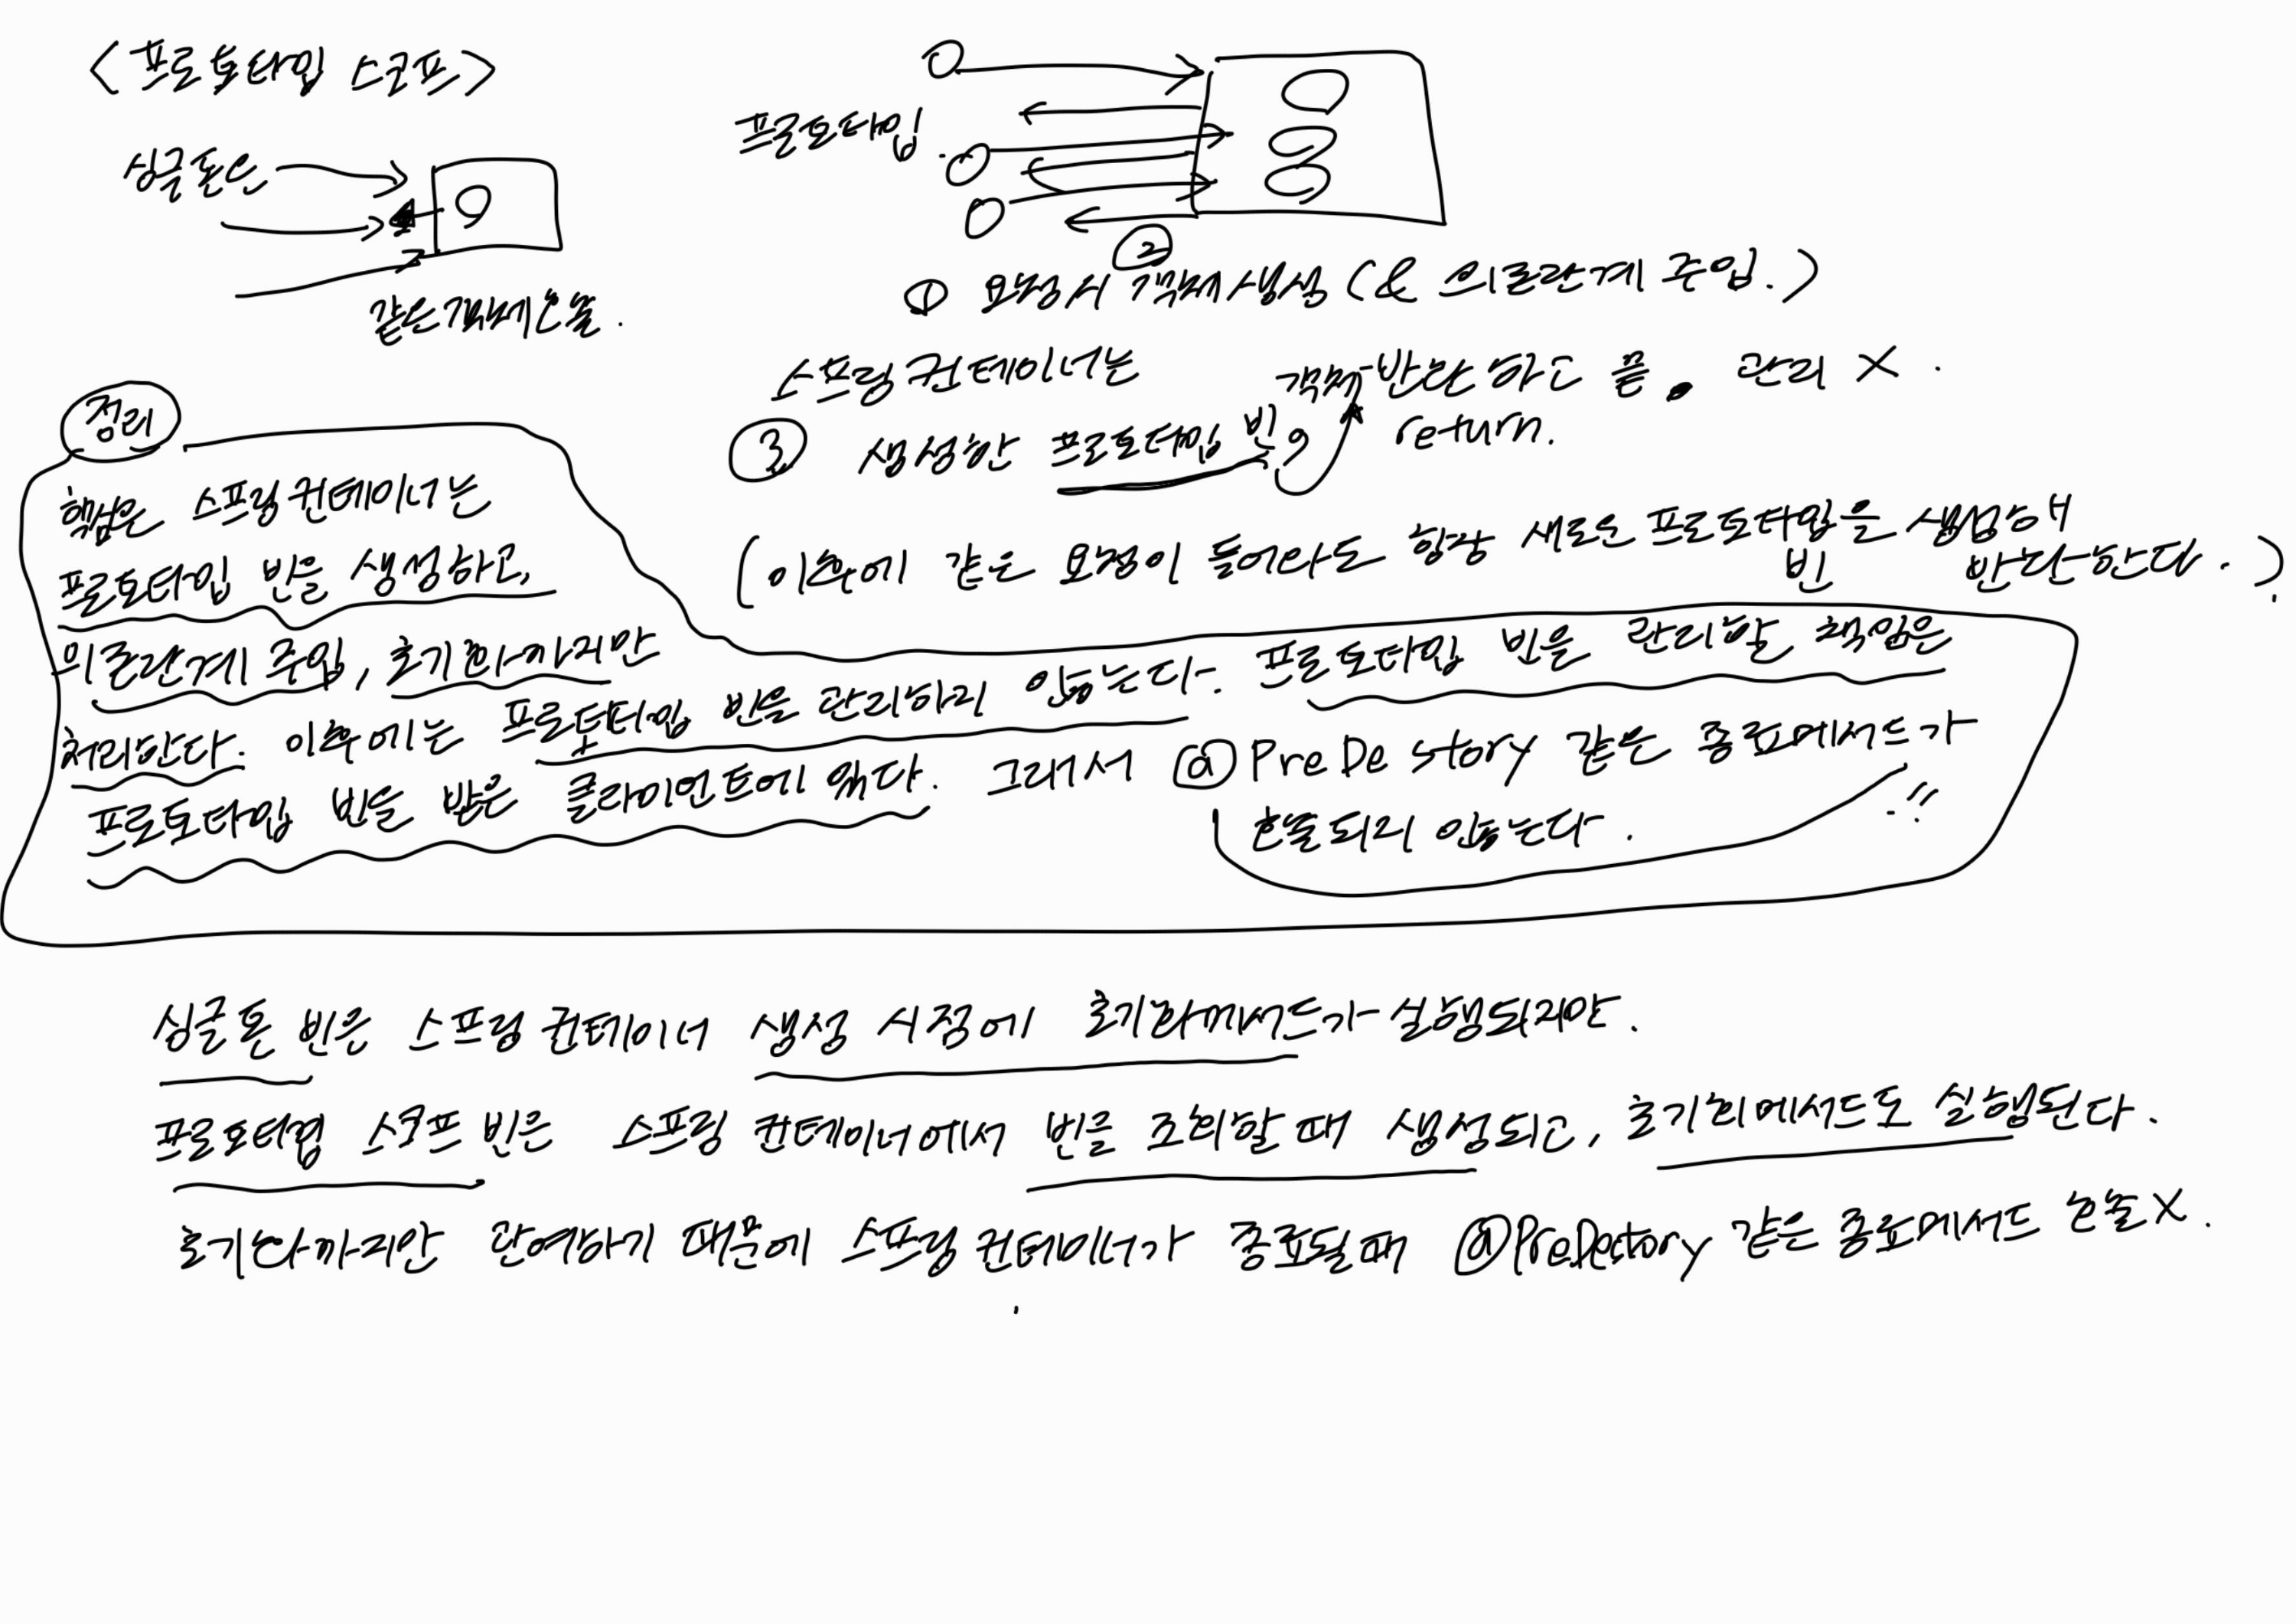 <프로토타입 스코프>
싱글톤은
같은 객체 인놀.
프로토타입.
① 요청시 ② 객체 생성 (& 의존관계 주입.)
스프링 컨테이너는
③ 생성한 프로토타입 빈을 객체 반환 하고 끝. 관리 X.
return.
(이후에 같은 요청이 들어와도 항상 새로운 프로토타입 빈을 생성해 반환한다.)
정리
핵심은 스프링 컨테이너는
프로토타입 빈을 생성하고,
의존관계 주입, 초기화까지만
처리한다. 이후에는 프로토타입 빈을 관리하지 않는다. 프로토타입 빈을 관리할 책임은
프로토타입 빈을 받은 클라이언트에 있다. 그래서 @PreDestory 같은 종료메서드가
호출되지 않는다. !!
싱글톤 빈은 스프링 컨테이너 생성 시점에 초기화메서드가 실행되지만.
프로토타입 스코프 빈은 스프링 컨테이너에서 빈을 조회할 때 생성되고, 초기화메서드도 실행된다.
초기화까지만 관여하기 때문에 스프링 컨테이너가 종료될때 @PreDectory 같은 종료메서드 호출X.